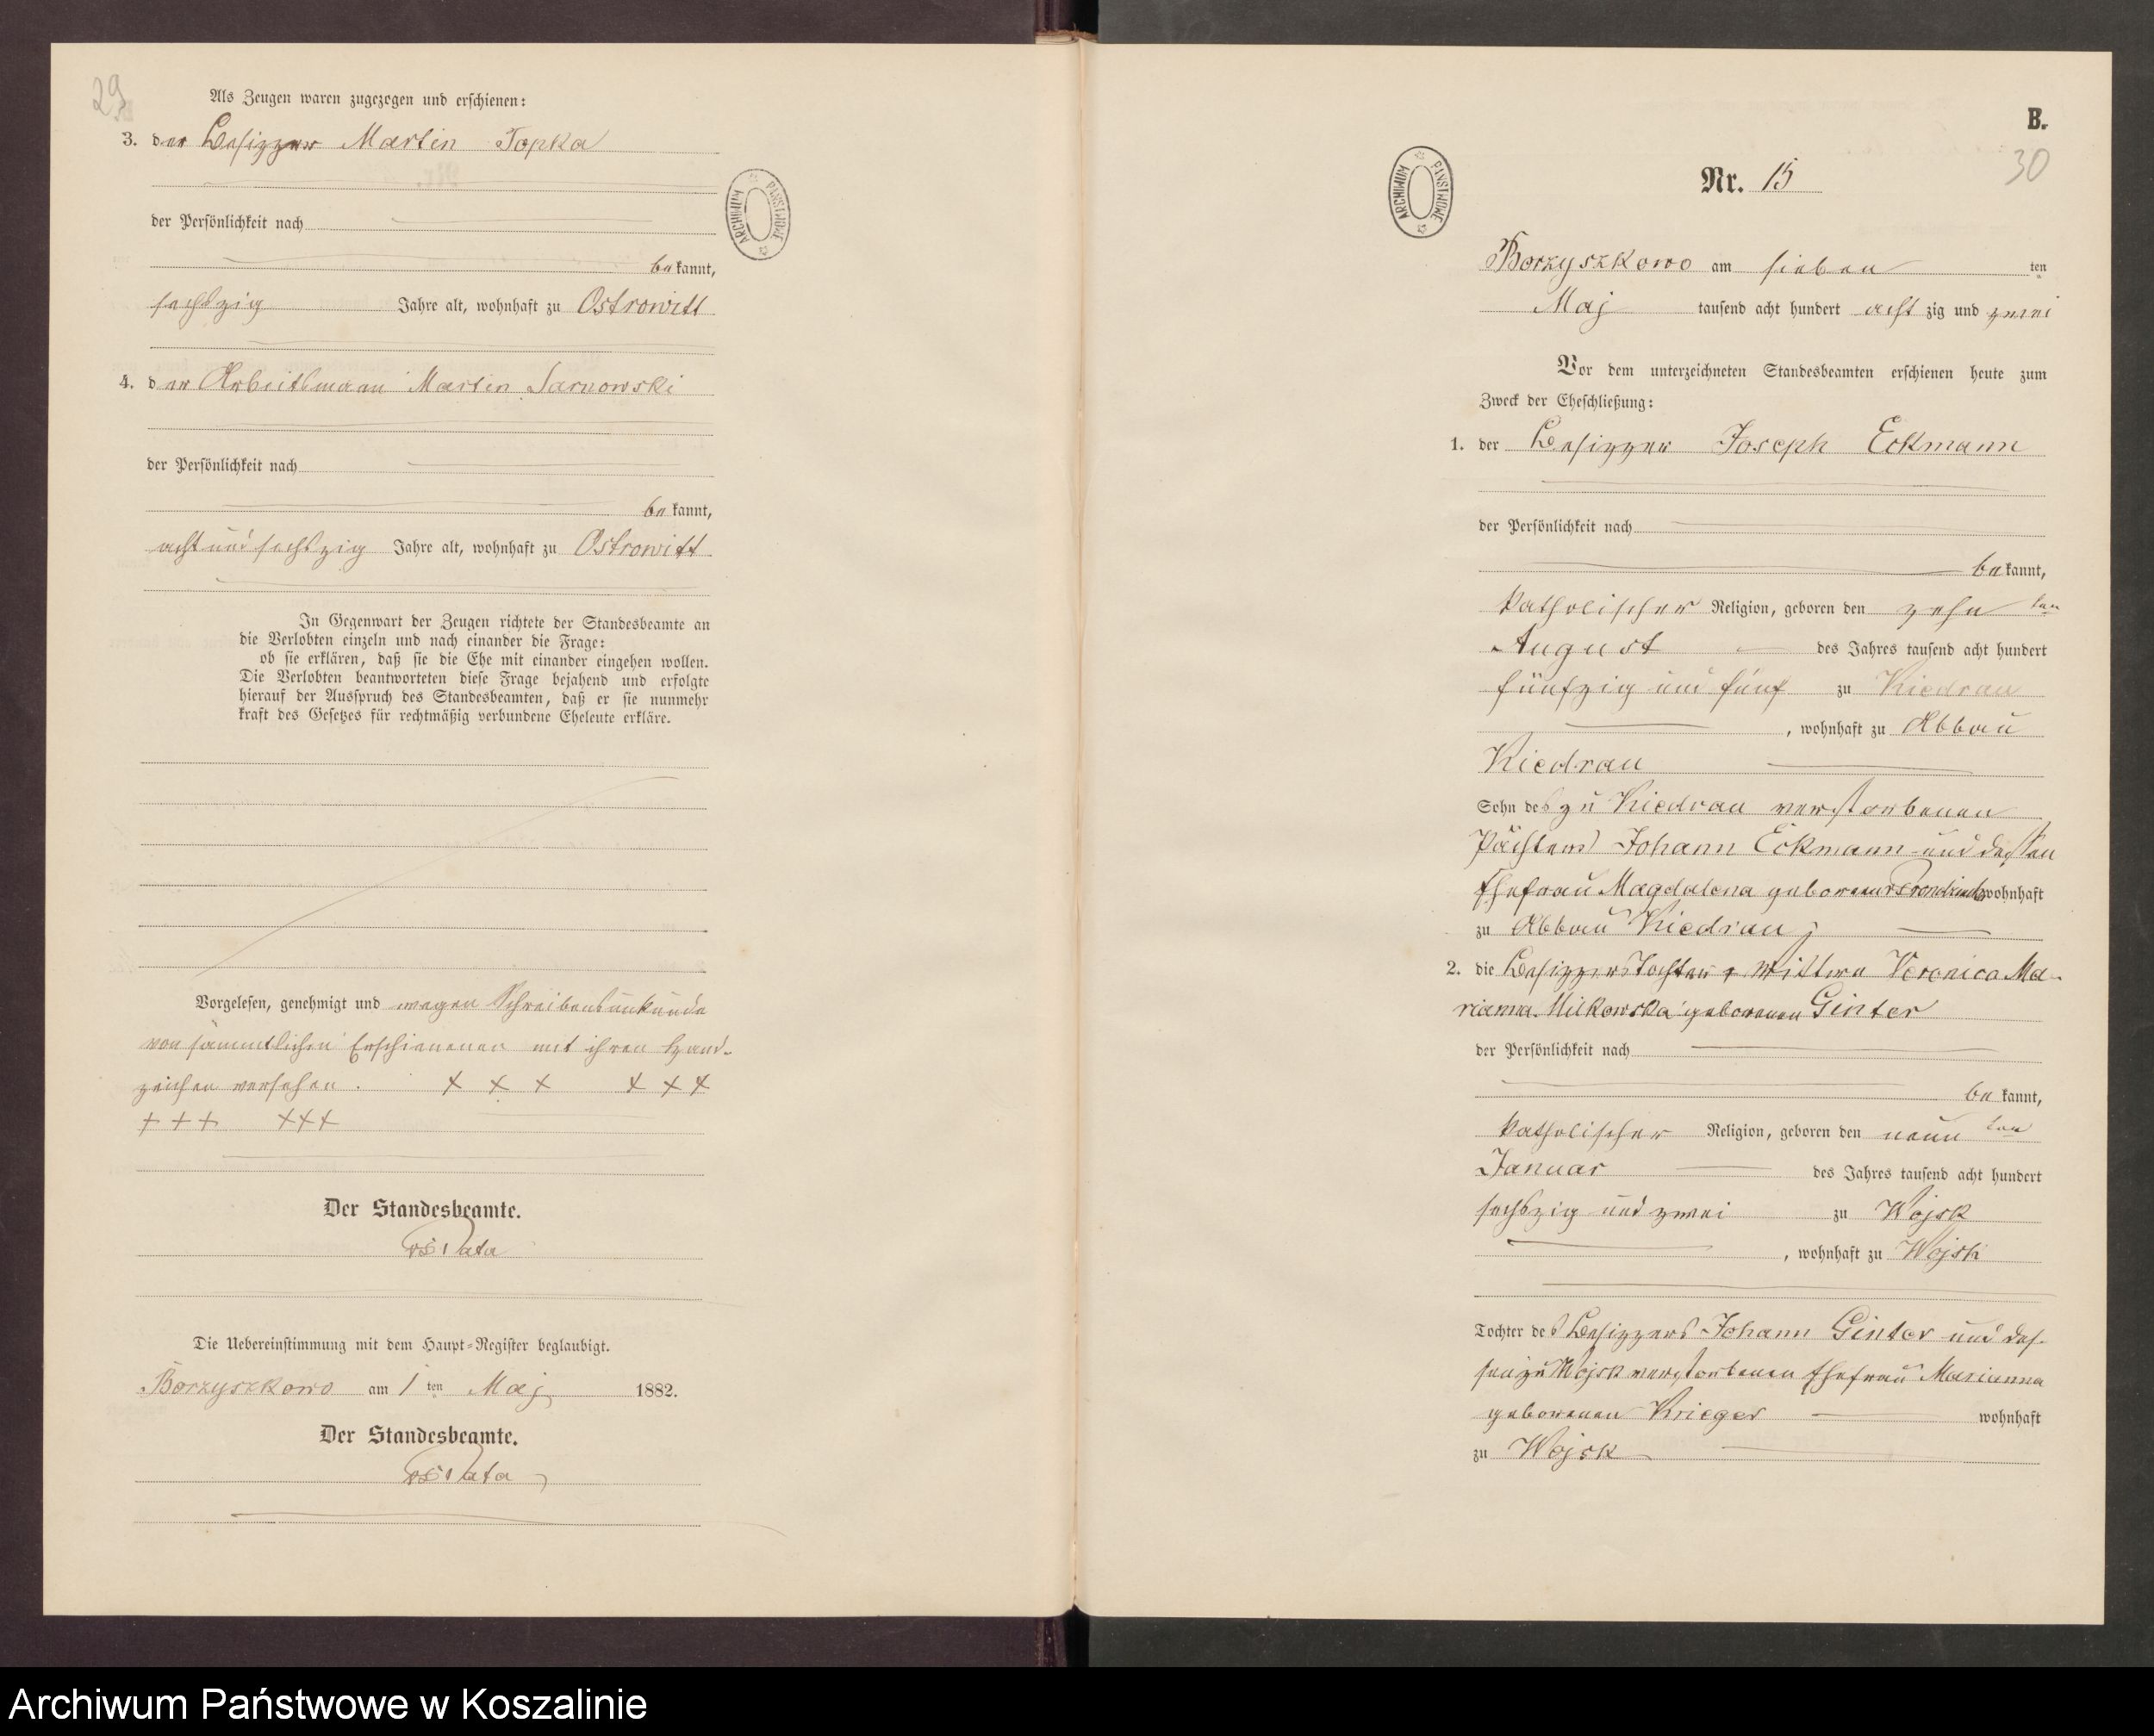 29
Als Zeugen waren zugezogen und erschienen:
3. der Besitzer Martin Topka
der Persönlichkeit nach
bekannt,
sechszig Jahre alt, wohnhaft zu Ostrowitt
4. der Arbeitsmann Martin Sarnowski
der Persönlichkeit nach
bekannt,
acht und sechszig Jahre alt, wohnhaft zu Ostrowitt
In Gegenwart der Zeugen richtete der Standesbeamte an
die Verlobten einzeln und nach einander die Frage:
ob sie erklären, daß sie die Ehe mit einander eingehen wollen.
Die Verlobten beantworteten diese Frage bejahend und erfolgte
hierauf der Ausspruch des Standesbeamten, daß er sie nunmehr
kraft des Gesetzes für rechtmäßig verbundene Eheleute erkläre.
Vorgelesen, genehmigt und wegen Schreibensunkunde
von sämmtlichen Erschienenen mit ihren Hand-
zeichen versehen. + + + + + +
+ + + + + +
Der Standesbeamte.
Die Uebereinstimmung mit dem Haupt-Register beglaubigt.
Borzyszkowo am 1 ten Maj 1882.
Der Standesbeamte.
ARCHIWUM PAŃSTWOWE
B.
30
ARCHIWUM PAŃSTWOWE
Nr. 15
Borzyszkowo am sieben ten
Maj tausend acht hundert acht zig und zwei
Vor dem unterzeichneten Standesbeamten erschienen heute zum
Zweck der Eheschließung:
1. der Besitzer Joseph Eckmann
der Persönlichkeit nach
bekannt,
katholischer Religion, geboren den zehn ten
August des Jahres tausend acht hundert
fünfzig und fünf zu Kiedrau
, wohnhaft zu Abbau
Kiedrau
Sohn des zu Kiedrau verstorbenen
Pächters Johann Eckmann und dessen
Ehefrau Magdalena geborenen wohnhaft
zu Abbau Kiedrau;
2. die Besitzers Tochter Wittwe Veronica Ma-
rianna geborenen Ginter
der Persönlichkeit nach
bekannt,
katholischer Religion, geboren den neun ten
Januar des Jahres tausend acht hundert
sechszig und zwei zu Wojsk
, wohnhaft zu Wojsk
Tochter des Besitzers Johann Ginter und des-
sen zu Wojsk verstorbenen Ehefrau Marianna
geborenen Krieger wohnhaft
zu Wojsk
Archiwum Państwowe w Koszalinie